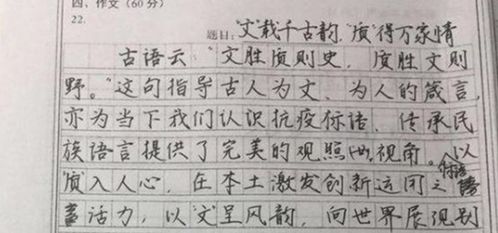 四、作文(60分)
22.
题目:“文”载千古韵 “质”得万家情
古语云“文胜质则史,质胜文则
野。”这句指导古人为文、为人的箴言,
亦为当下我们认识抗疫标语、传承民
族语言提供了完美的观照视角。以
“质”入人心,在本土激发创新运用之
活力,以“文”呈风韵,向世界展现别